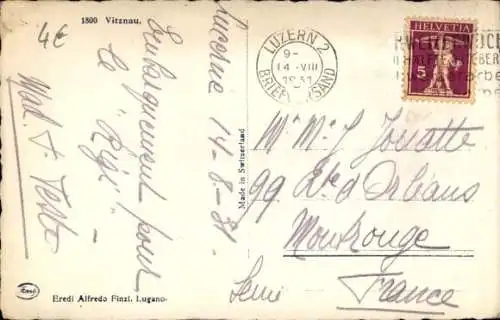 1800 Vitznau.
4€
Lucerne 14-8-31
Embarquement pour
le "Rigi"
Mad. &
Made in Switzerland
Eredi Alfredo Finzi, Lugano
LUZERN 2
9-
14 VIII
BRIEFVERSAND
HELVETIA
5
Mr Mme J. Jouatte
99 Rte d'Orléans
Montrouge
Seine
France